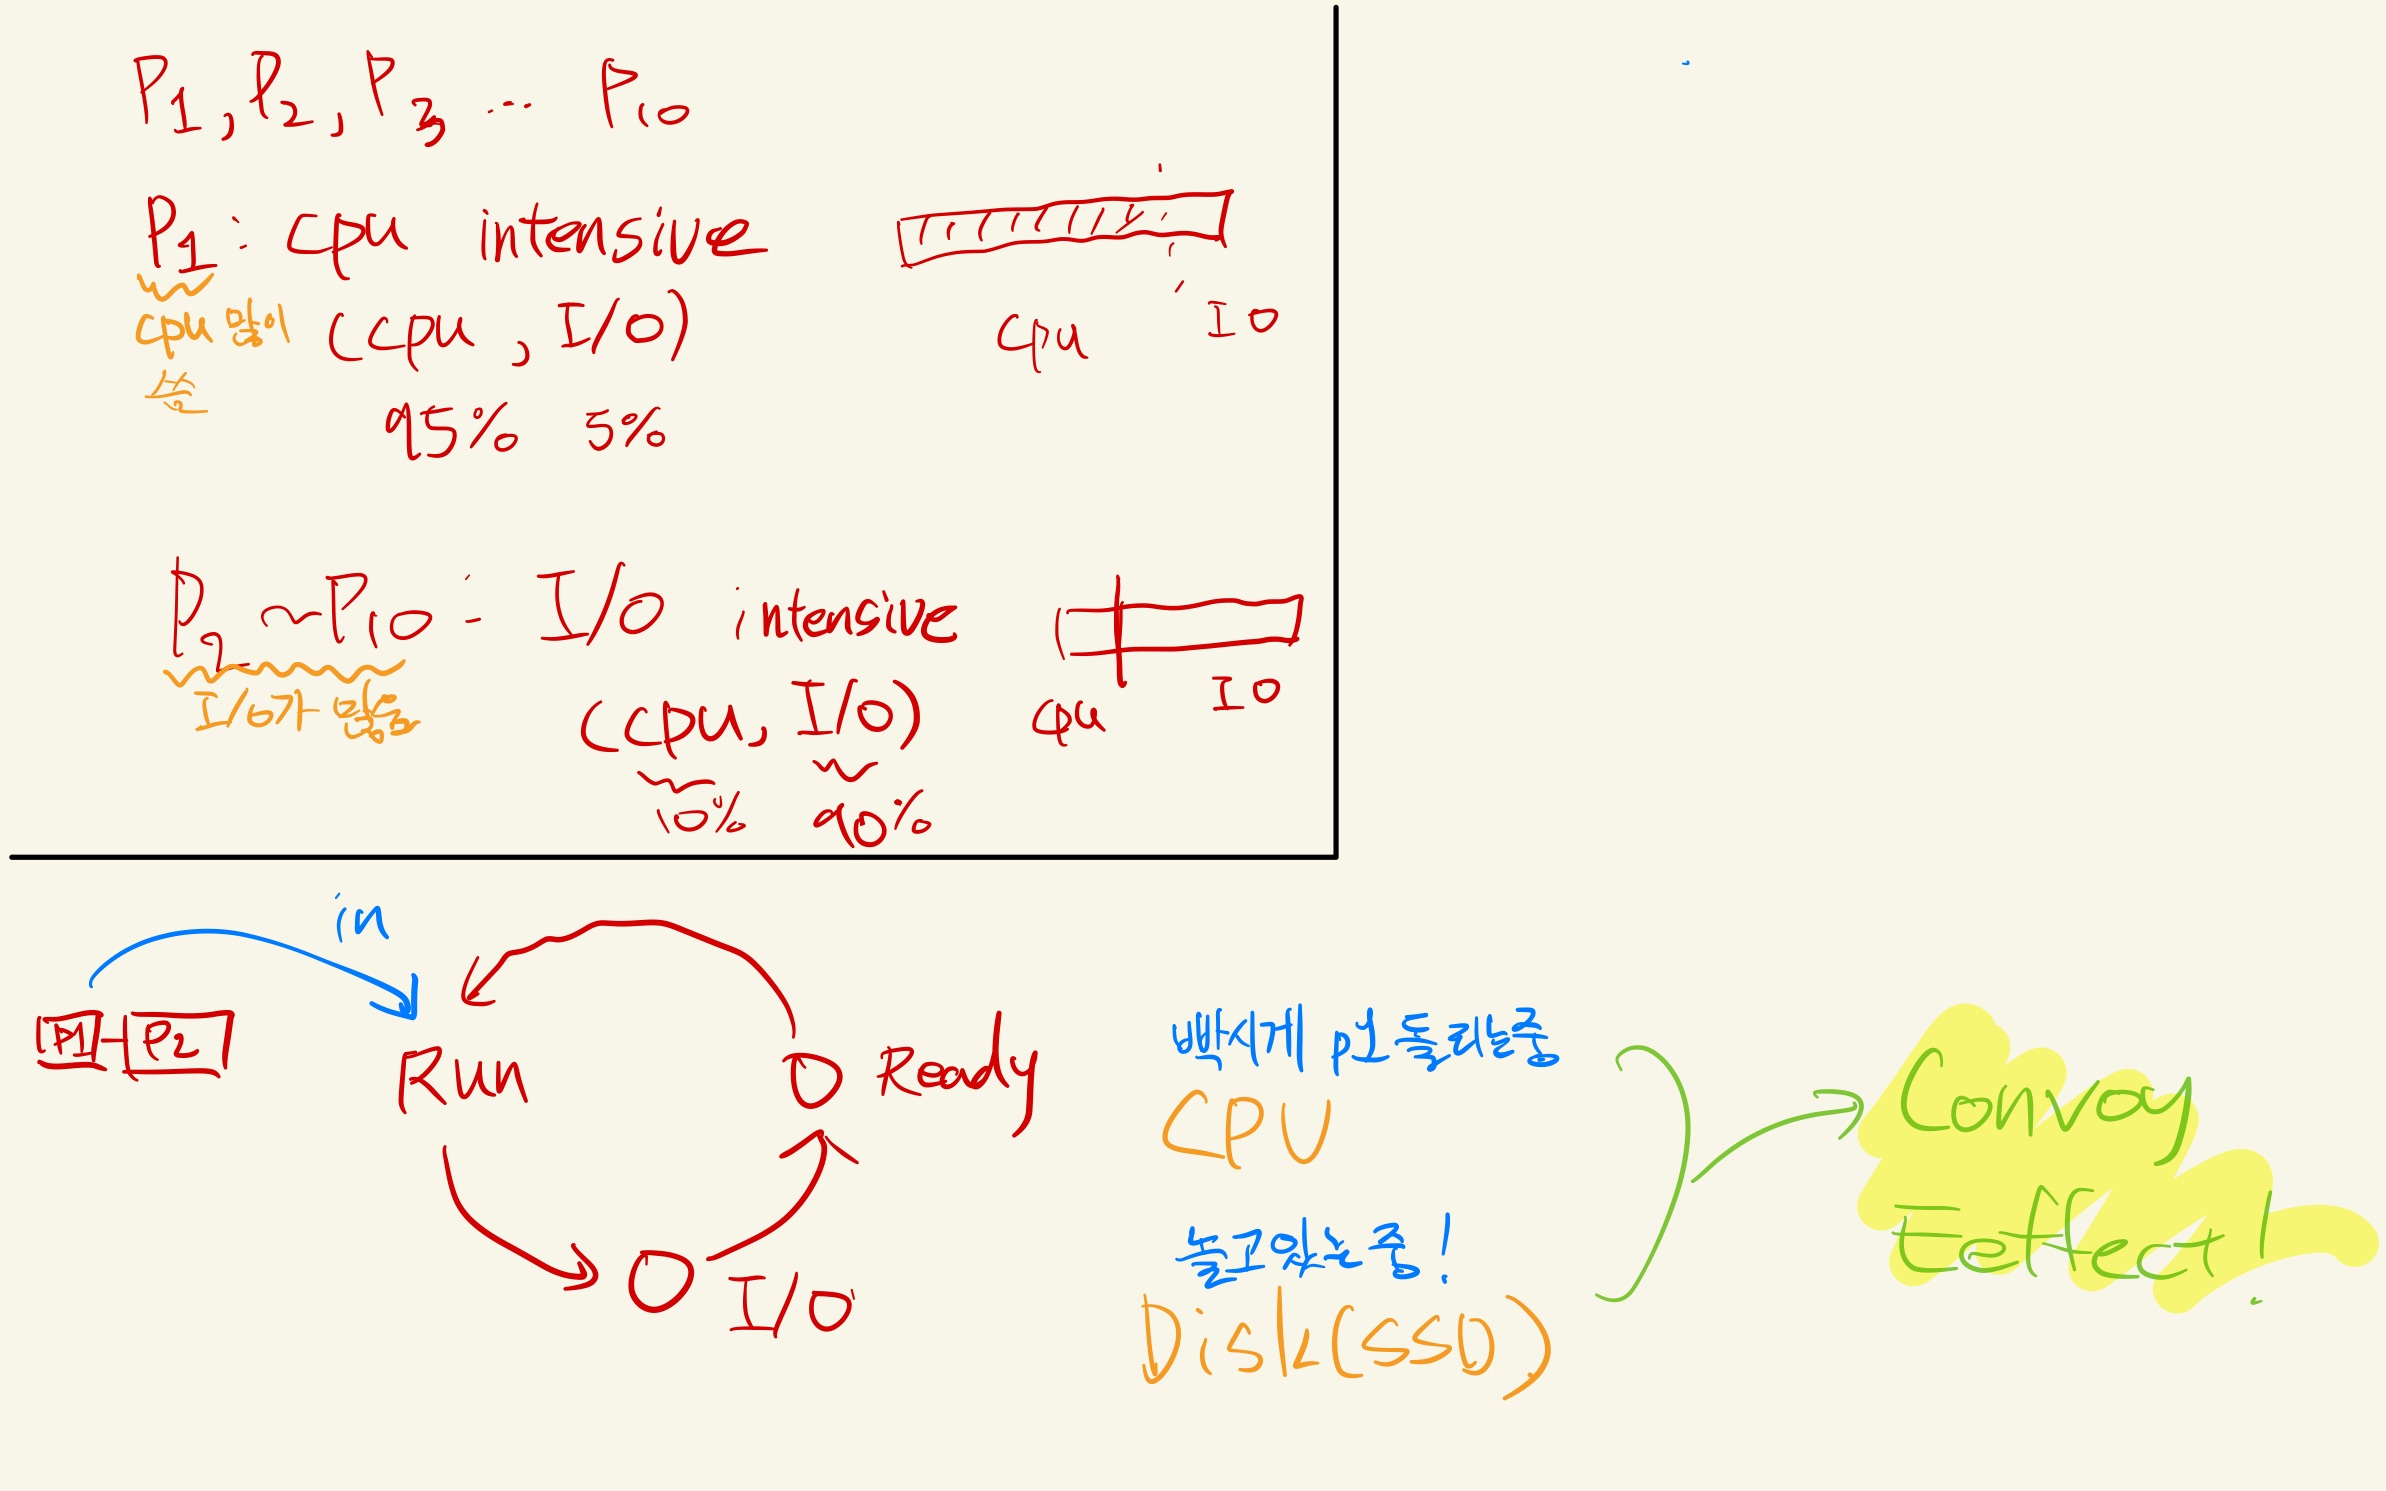 P1, P2, P3 ... P10
P1 : cpu intensive
cpu 많이
씀
(cpu, I/O)
95% 5%
cpu
IO
P2 ~ P10 : I/O intensive
I/O가 많음
(cpu, I/O)
10% 90%
cpu
IO
in
P1 P2
Run
Ready
I/O
빡세게 P1 돌리는중
CPU
놀고있는 중!
Disk(SSD)
Convoy
Effect!